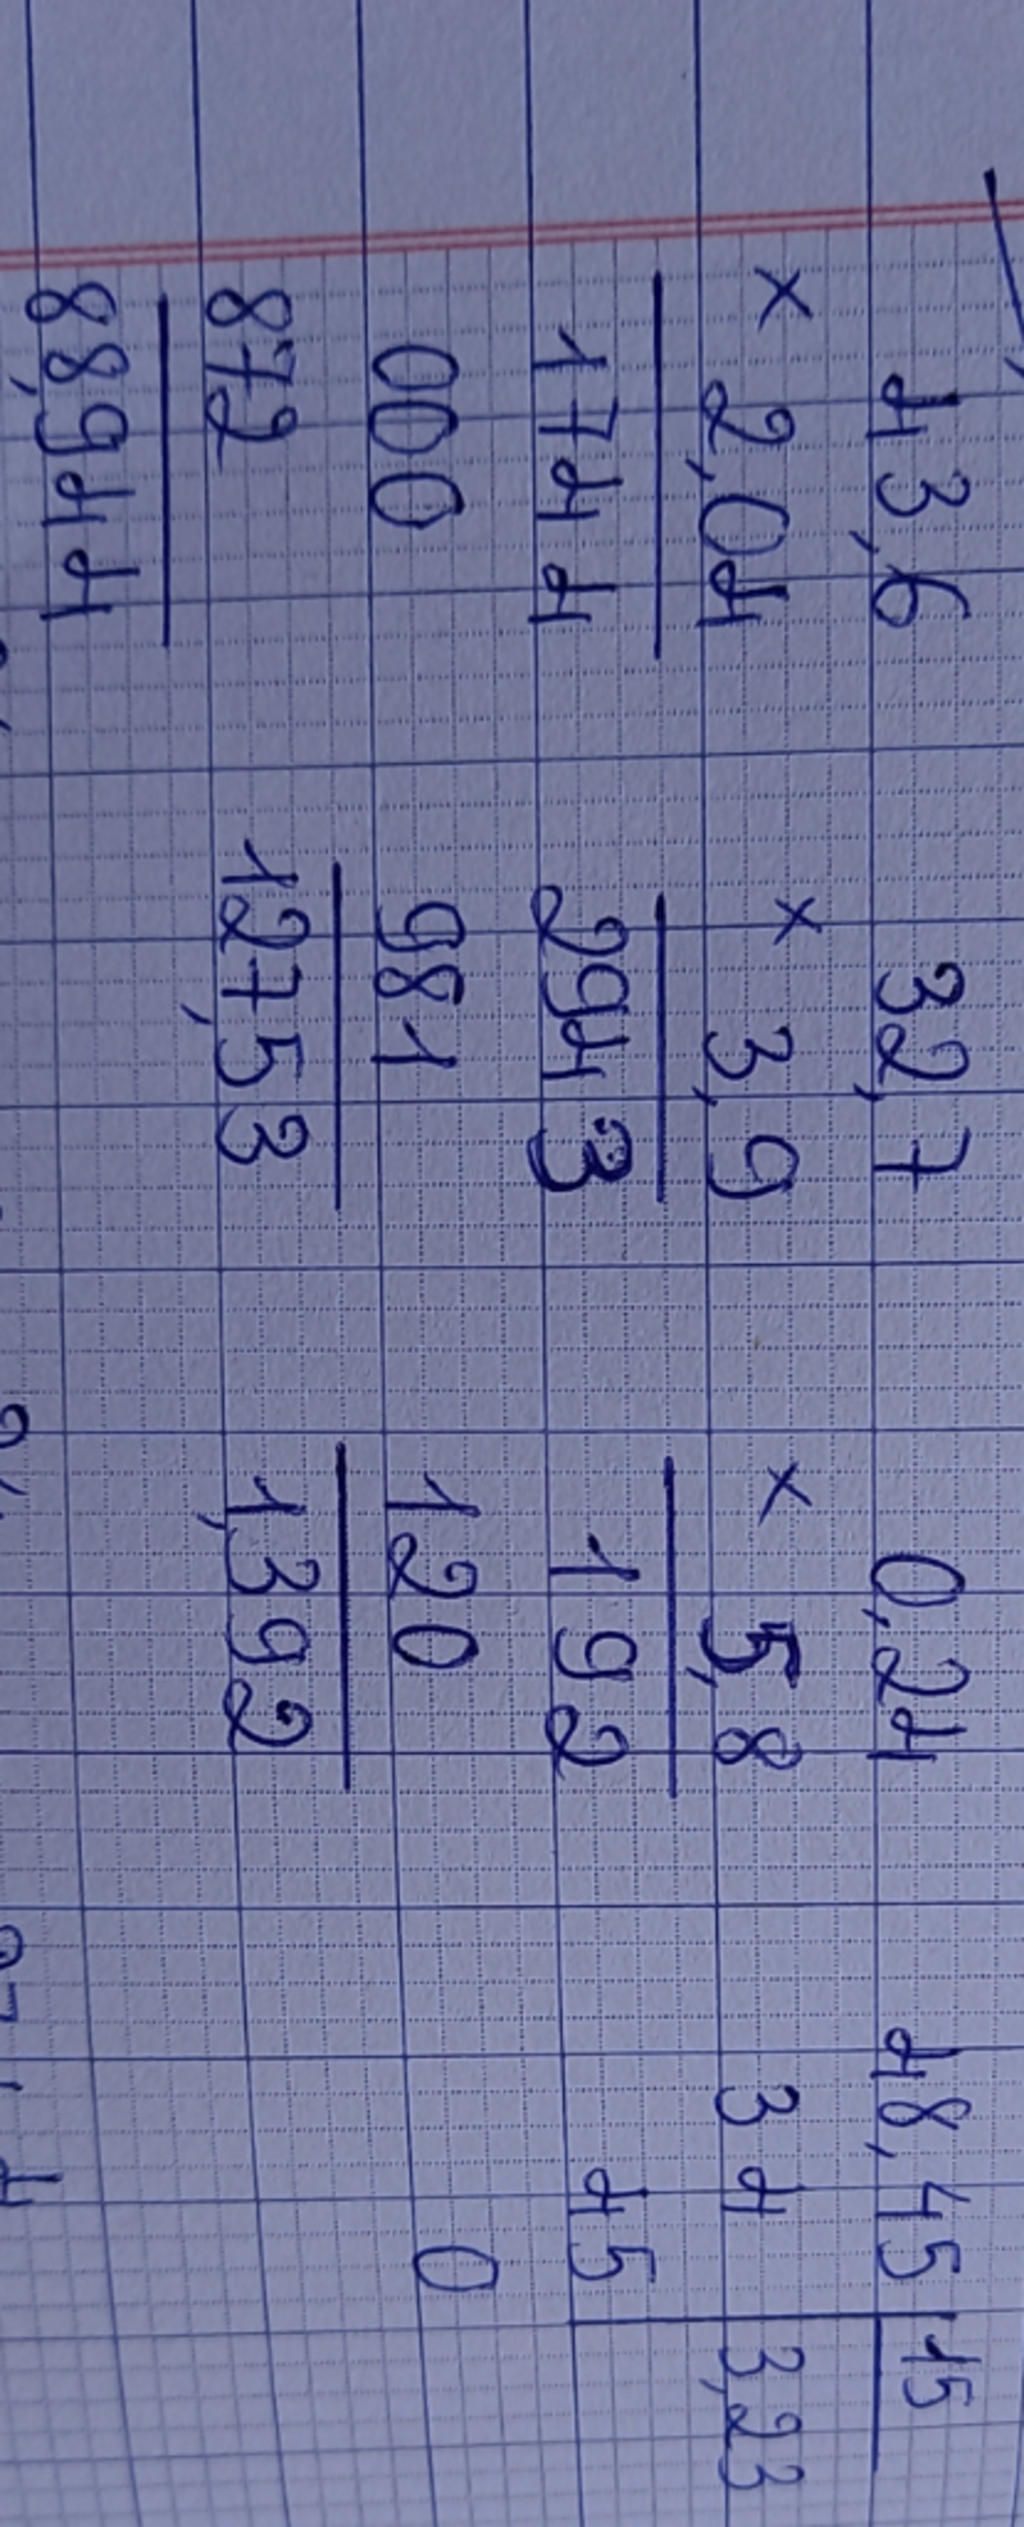 43,6
× 2,04
1744
000
872
88,944
32,7
× 3,9
2943
981
127,53
0,24
× 5,8
192
120
1,392
48,45 | 15
34 | 3,23
45
0